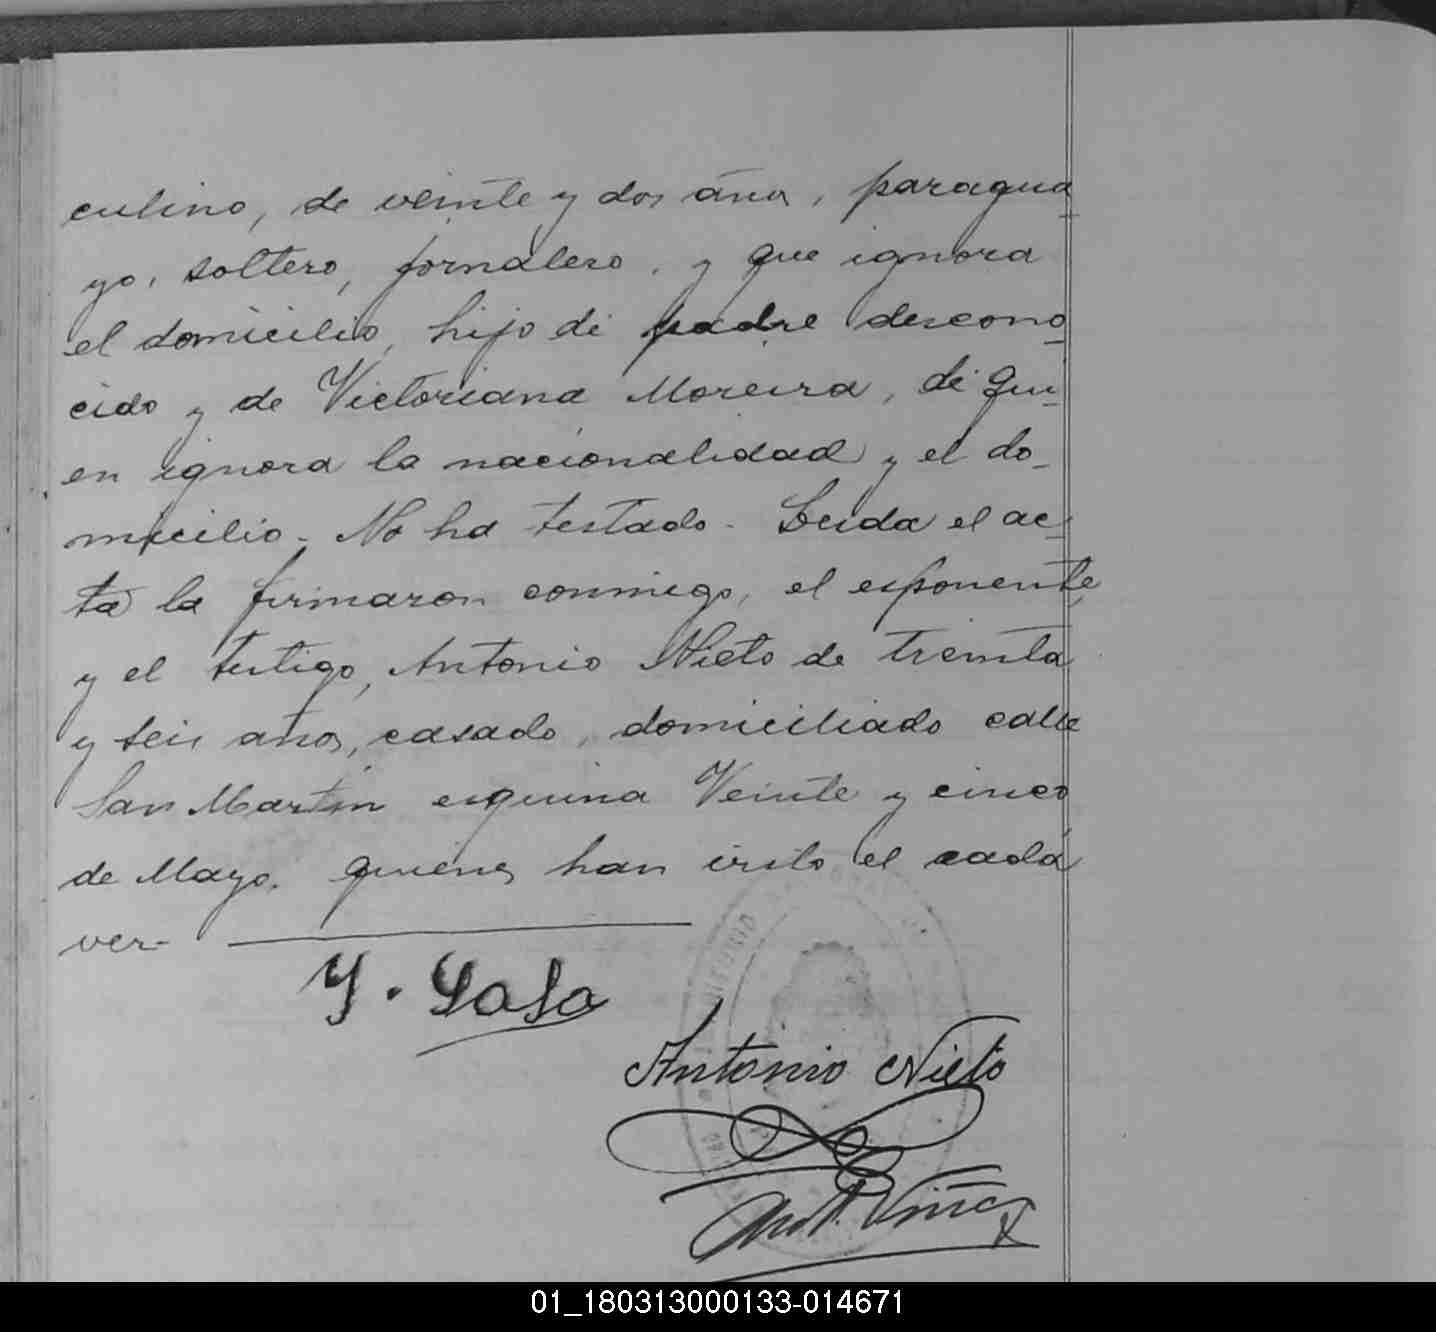 culino, de veinte y dos años, paragua
yo, soltero, jornalero, y que ignora
el domicilio, hijo de padre descono
cido y de Victoriana Moreira, de qui
en ignora la nacionalidad y el do_
micilio. No ha testado. Leida el ac
ta la firmaron conmigo, el esponente,
y el testigo, Antonio Nieto de treinta
y seis años, casado, domiciliado calle
San Martin esquina Veinte y cinco
de Mayo, quienes han visto el cadá
ver.-
Y. Sosa
Antonio Nieto
01_180313000133-014671